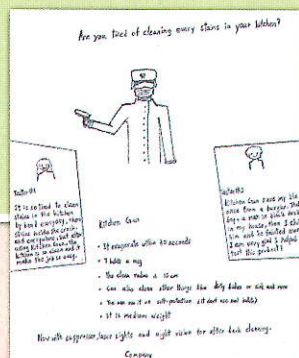 Are you tired of cleaning every stains in your kitchen?
Tester#1
It is so tired to clean
stains in the kitchen
by hand everyday, there
stains inside the cracks
and everywhere, but after
using Kitchen Gun, the
kitchen is so clean and it
make the job so easy.
Tester#2
Kitchen Gun save my life
once from a burglar, that
day a man in black
in my house, then I
him and he fainted
I am very glad I
test this product!
Kitchen Gun
• It evaporate within 30 seconds
• 7 bullets a mag
• The clean radius is 10 cm
• Can also clean other things like dirty dishes or sink and more
• You can use it as self-protection (it don't use real bullets)
• It is medium weight
Now with suppressor, laser sights and night vision for after dark cleaning.
Company